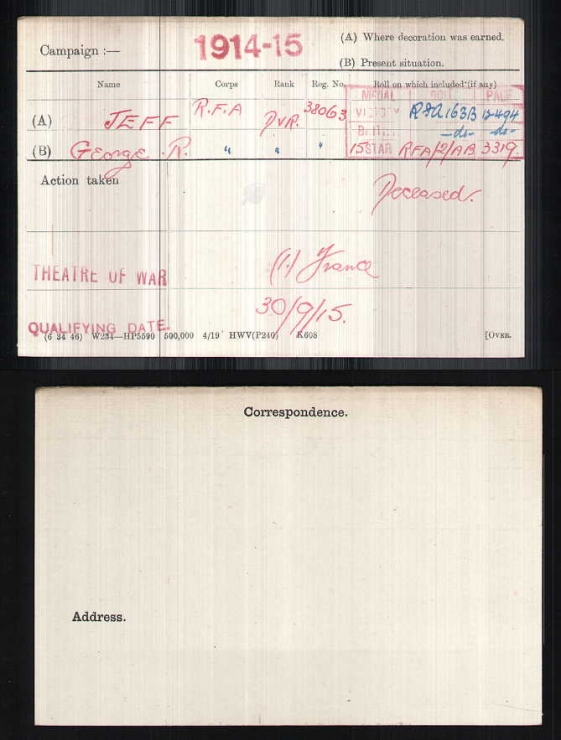 Campaign :—
1914-15
(A) Where decoration was earned.
(B) Present situation.
Name Corps Rank Reg. No. Roll on which included (if any)
MEDAL ROLL PAGE
(A) JEFF R.F.A DVR. 38063 VICTORY RFA 163B 12494
BRITISH —do— —do—
(B) George R. " " " 15 STAR RFA/12/AB 3319.
Action taken
Deceased.
THEATRE OF WAR (1) France
QUALIFYING DATE. 30/9/15.
(6 34 46) W234—HP5590 500,000 4/19 HWV(P240) K608 [OVER.
Correspondence.
Address.